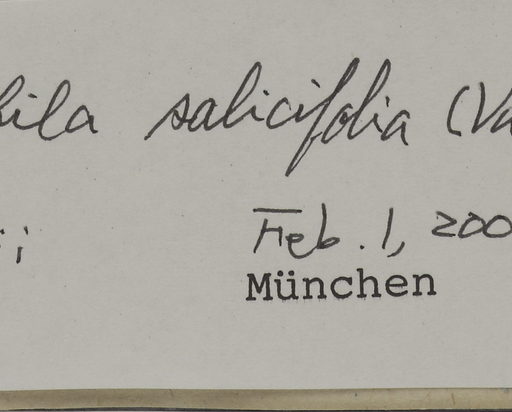 hila salicifolia (Va
i;
Feb. 1, 200
München